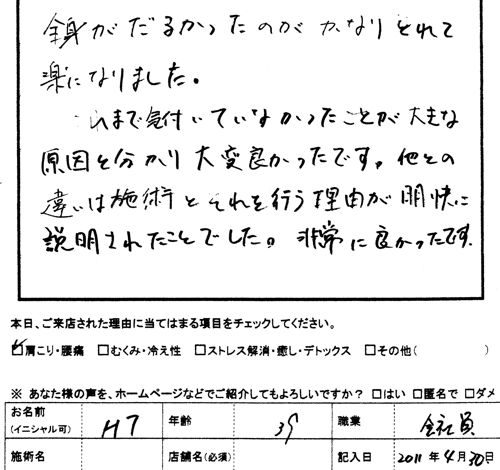 全身がだるかったのが かなりとれて
楽になりました。
これまで気付いていなかったことが大きな
原因と分かり大変良かったです。他との
違いは施術とそれを行う理由が明快に
説明されたことでした。非常に良かったです。
本日、ご来店された理由に当てはまる項目をチェックしてください。
☑肩こり・腰痛 □むくみ・冷え性 □ストレス解消・癒し・デトックス □その他( )
※ あなた様の声を、ホームページなどでご紹介してもよろしいですか？ □はい □匿名で □ダメ
お名前 (イニシャル可) HT 年齢 39 職業 会社員
施術名 店舗名(必須) 記入日 2011年4月30日